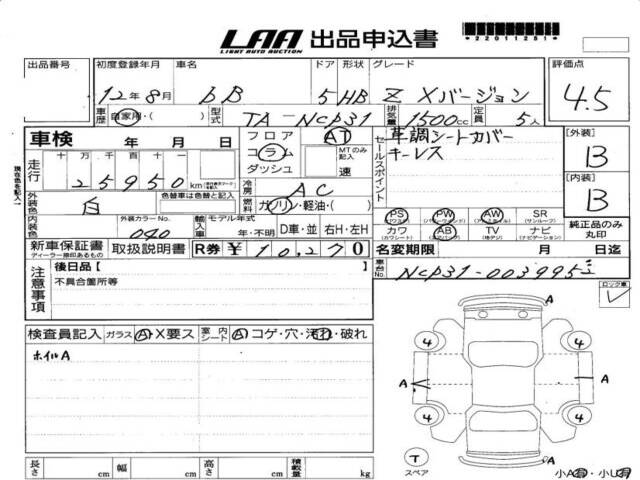 LAA 出品申込書
LIGHT AUTO AUCTION
*22011251*
出品番号 初度登録年月 車名 ドア 形状 グレード 評価点
12年8月 bB 5 HB Z Xバージョン 4.5
車歴 自家用・( ) 型式 TA-NCP31 排気量 1500cc 定員 5人
車検 年 月 日 フロア AT セールスポイント 革調シートカバー [外装]
キーレス B
走行 十 万 千 百 十 一 コラム MTのみ記入
25950 km ダッシュ 速
現在色を記入↑
冷房 AC [内装]
外装色 白 色替車は色替と記入 燃料 ガソリン・軽油・( ) B
PS PW AW SR
(パワステ) (パワーウインド) (アルミホイル) (サンルーフ)
内装色 外装カラーNo. 040 輸入車 モデル年式 年・不明 D車・並 右H・左H カワ AB TV ナビ 純正品のみ丸印
(カワシート) (エアバック) (地デジ) (ナビゲーション)
新車保証書 取扱説明書 R券 ¥ 10,270 名変期限 月 日迄
ディーラー捺印あるもの
車台No. NCP31-0039952
注意事項 後日品【 】 ロック車
不具合箇所等
検査員記入 ガラス A・X要ス 室内シート A コゲ・穴・汚れ・破れ
ホイルA
A
4 4
A A
4 4
T A
スペア 小A有・小U有
長さ cm 幅 cm 高さ cm 積載量 kg